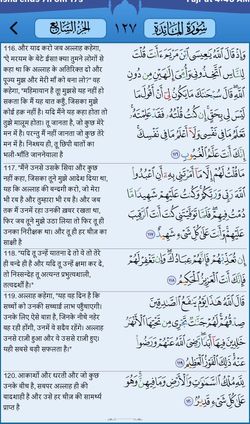 الجزء السابع
١٢٧
سورة المائدة
116. और याद करो जब अल्लाह कहेगा,
"ऐ मरयम के बेटे ईसा! क्या तुमने लोगों से
कहा था कि अल्लाह के अतिरिक्त दो और
पूज्य मुझ और मेरी माँ को बना लो?" वह
कहेगा, "महिमावान है तू! मुझसे यह नहीं हो
सकता कि मैं यह बात कहूँ, जिसका मुझे
कोई हक़ नहीं है। यदि मैंने यह कहा होता तो
तुझे मालूम होता। तू जानता है, जो कुछ मेरे
मन में है। परन्तु मैं नहीं जानता जो कुछ तेरे
मन में है। निश्चय ही, तू छिपी बातों का
भली-भाँति जाननेवाला है
117. "मैंने उनसे उसके सिवा और कुछ
नहीं कहा, जिसका तूने मुझे आदेश दिया था,
यह कि अल्लाह की बन्दगी करो, जो मेरा
भी रब है और तुम्हारा भी रब है। और जब
तक मैं उनमें रहा उनकी ख़बर रखता था,
फिर जब तूने मुझे उठा लिया तो फिर तू ही
उनका निरीक्षक था। और तू ही हर चीज़ का
साक्षी है
118. "यदि तू उन्हें यातना दे तो वे तो तेरे
ही बन्दे ही है और यदि तू उन्हें क्षमा कर दे,
तो निस्सन्देह तू अत्यन्त प्रभुत्वशाली,
तत्वदर्शी है।"
119. अल्लाह कहेगा, "यह वह दिन है कि
सच्चों को उनकी सच्चाई लाभ पहुँचाएगी।
उनके लिए ऐसे बाग़ है, जिनके नीचे नहरें
बह रही होंगी, उनमें वे सदैव रहेंगे। अल्लाह
उनसे राज़ी हुआ और वे उससे राज़ी हुए।
यही सबसे बड़ी सफलता है।"
120. आकाशों और धरती और जो कुछ
उनके बीच है, सबपर अल्लाह ही की
बादशाही है और उसे हर चीज़ की सामर्थ्य
प्राप्त है
وَإِذْ قَالَ ٱللَّهُ يَٰعِيسَى ٱبْنَ مَرْيَمَ ءَأَنتَ قُلْتَ
لِلنَّاسِ ٱتَّخِذُونِى وَأُمِّىَ إِلَٰهَيْنِ مِن دُونِ
ٱللَّهِ قَالَ سُبْحَٰنَكَ مَا يَكُونُ لِىٓ أَنْ أَقُولَ مَا
لَيْسَ لِى بِحَقٍّ إِن كُنتُ قُلْتُهُۥ فَقَدْ عَلِمْتَهُۥ
تَعْلَمُ مَا فِى نَفْسِى وَلَآ أَعْلَمُ مَا فِى نَفْسِكَ
إِنَّكَ أَنتَ عَلَّٰمُ ٱلْغُيُوبِ ١١٦
مَا قُلْتُ لَهُمْ إِلَّا مَآ أَمَرْتَنِى بِهِۦٓ أَنِ ٱعْبُدُوا۟
ٱللَّهَ رَبِّى وَرَبَّكُمْ وَكُنتُ عَلَيْهِمْ شَهِيدًا مَّا
دُمْتُ فِيهِمْ فَلَمَّا تَوَفَّيْتَنِى كُنتَ أَنتَ ٱلرَّقِيبَ
عَلَيْهِمْ وَأَنتَ عَلَىٰ كُلِّ شَىْءٍ شَهِيدٌ ١١٧
إِن تُعَذِّبْهُمْ فَإِنَّهُمْ عِبَادُكَ وَإِن تَغْفِرْ لَهُمْ
فَإِنَّكَ أَنتَ ٱلْعَزِيزُ ٱلْحَكِيمُ ١١٨
قَالَ ٱللَّهُ هَٰذَا يَوْمُ يَنفَعُ ٱلصَّٰدِقِينَ
صِدْقُهُمْ لَهُمْ جَنَّٰتٌ تَجْرِى مِن تَحْتِهَا ٱلْأَنْهَٰرُ
خَٰلِدِينَ فِيهَآ أَبَدًا رَّضِىَ ٱللَّهُ عَنْهُمْ وَرَضُوا۟
عَنْهُ ذَٰلِكَ ٱلْفَوْزُ ٱلْعَظِيمُ ١١٩
لِلَّهِ مُلْكُ ٱلسَّمَٰوَٰتِ وَٱلْأَرْضِ وَمَا فِيهِنَّ وَهُوَ
عَلَىٰ كُلِّ شَىْءٍ قَدِيرٌۢ ١٢٠